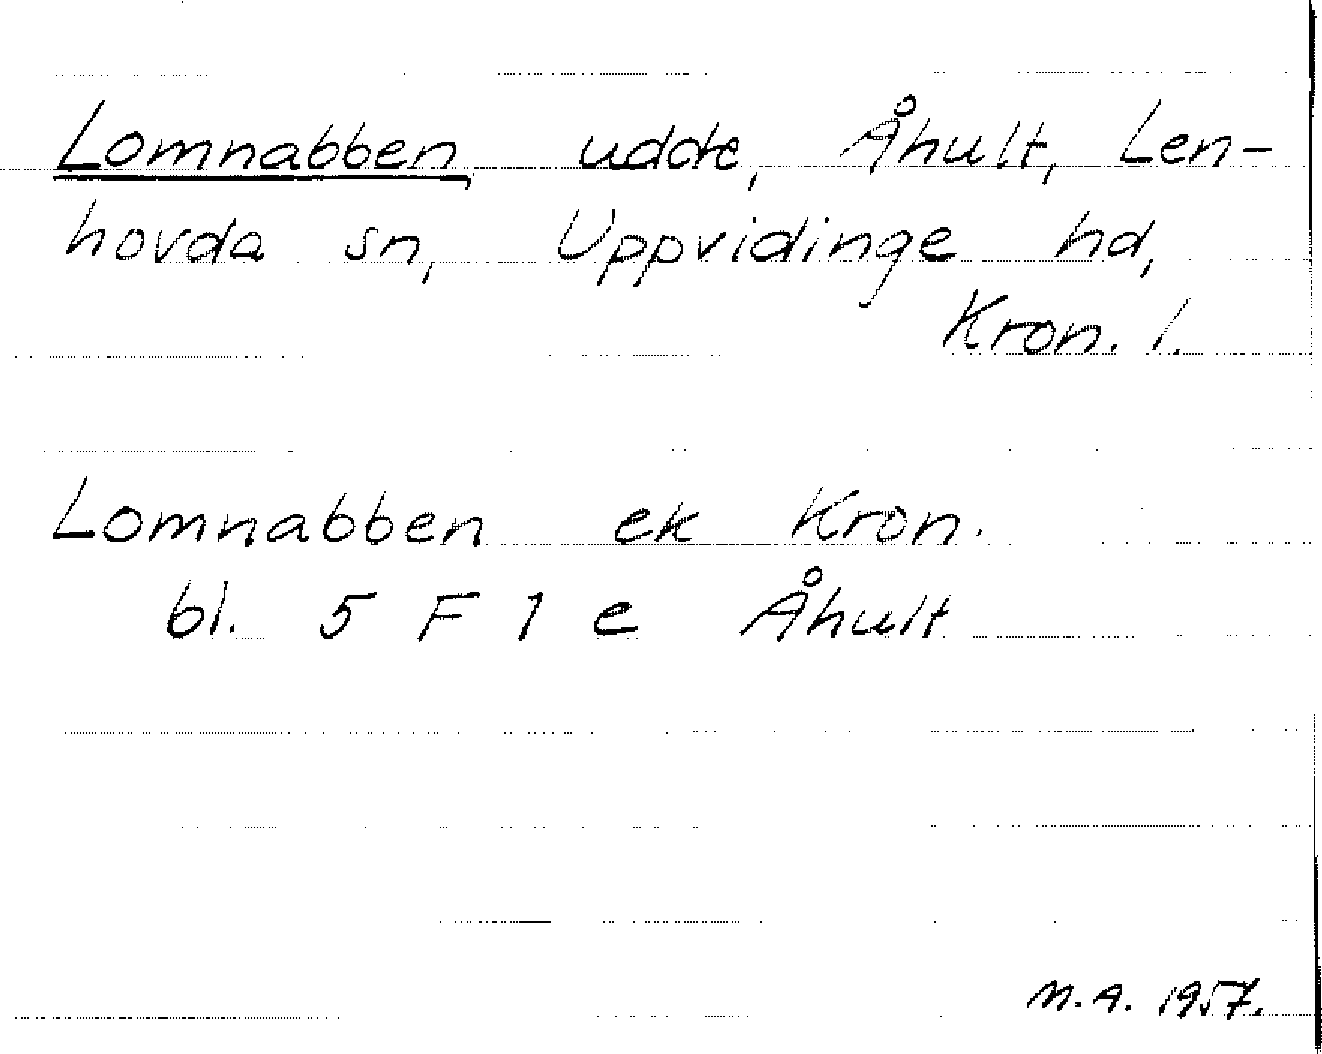 Lomnabben, udde, Åhult, Len-
hovda sn, Uppvidinge hd,
Kron. l.
Lomnabben ek Kron.
bl. 5 F 1 e Åhult
M.A. 1957.